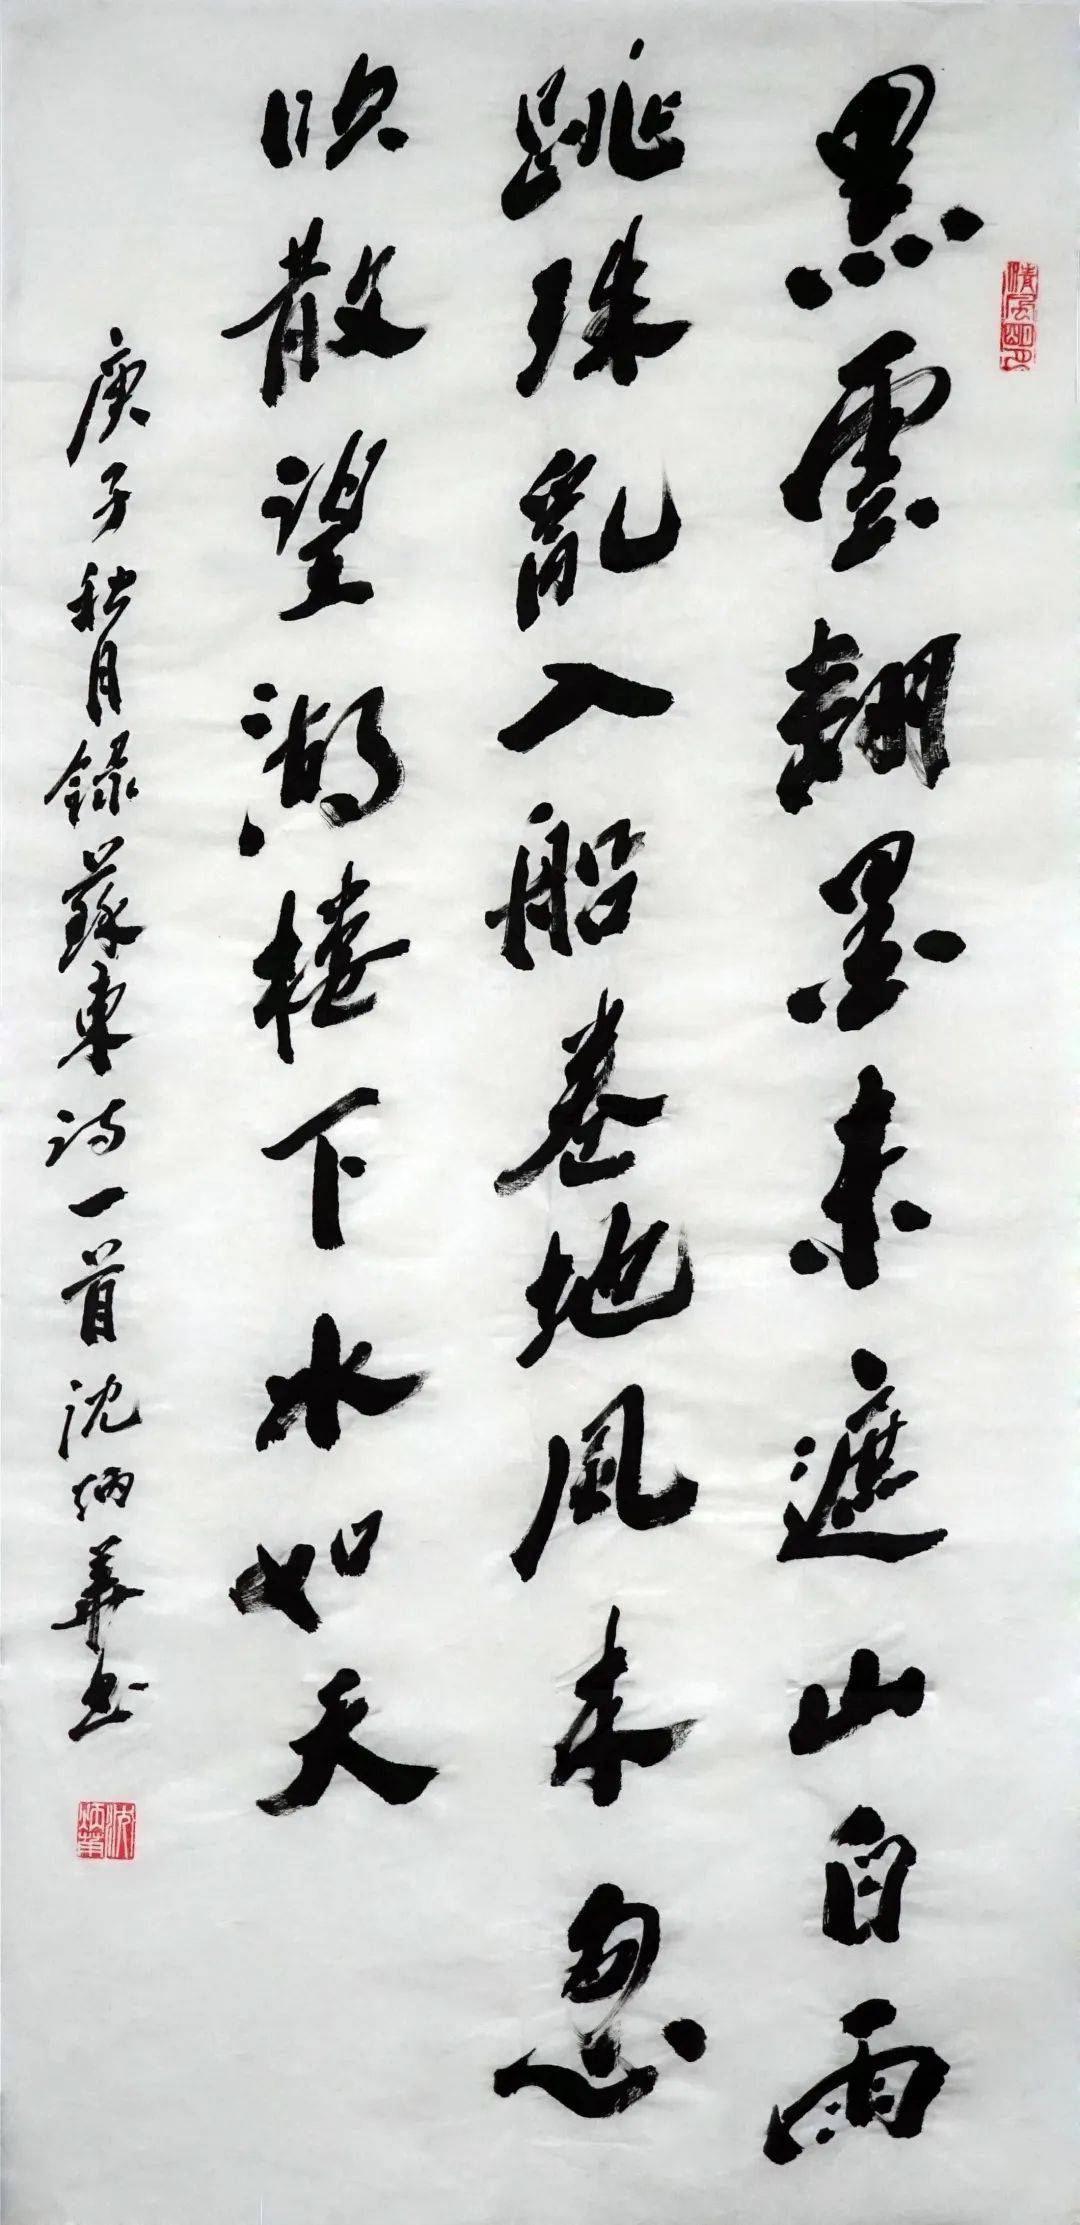 清風明月
黑雲翻墨未遮山白雨
跳珠亂入船卷地風來忽
吹散望湖樓下水如天
庚子秋月錄蘇東詩一首沈炳華書
沈炳華